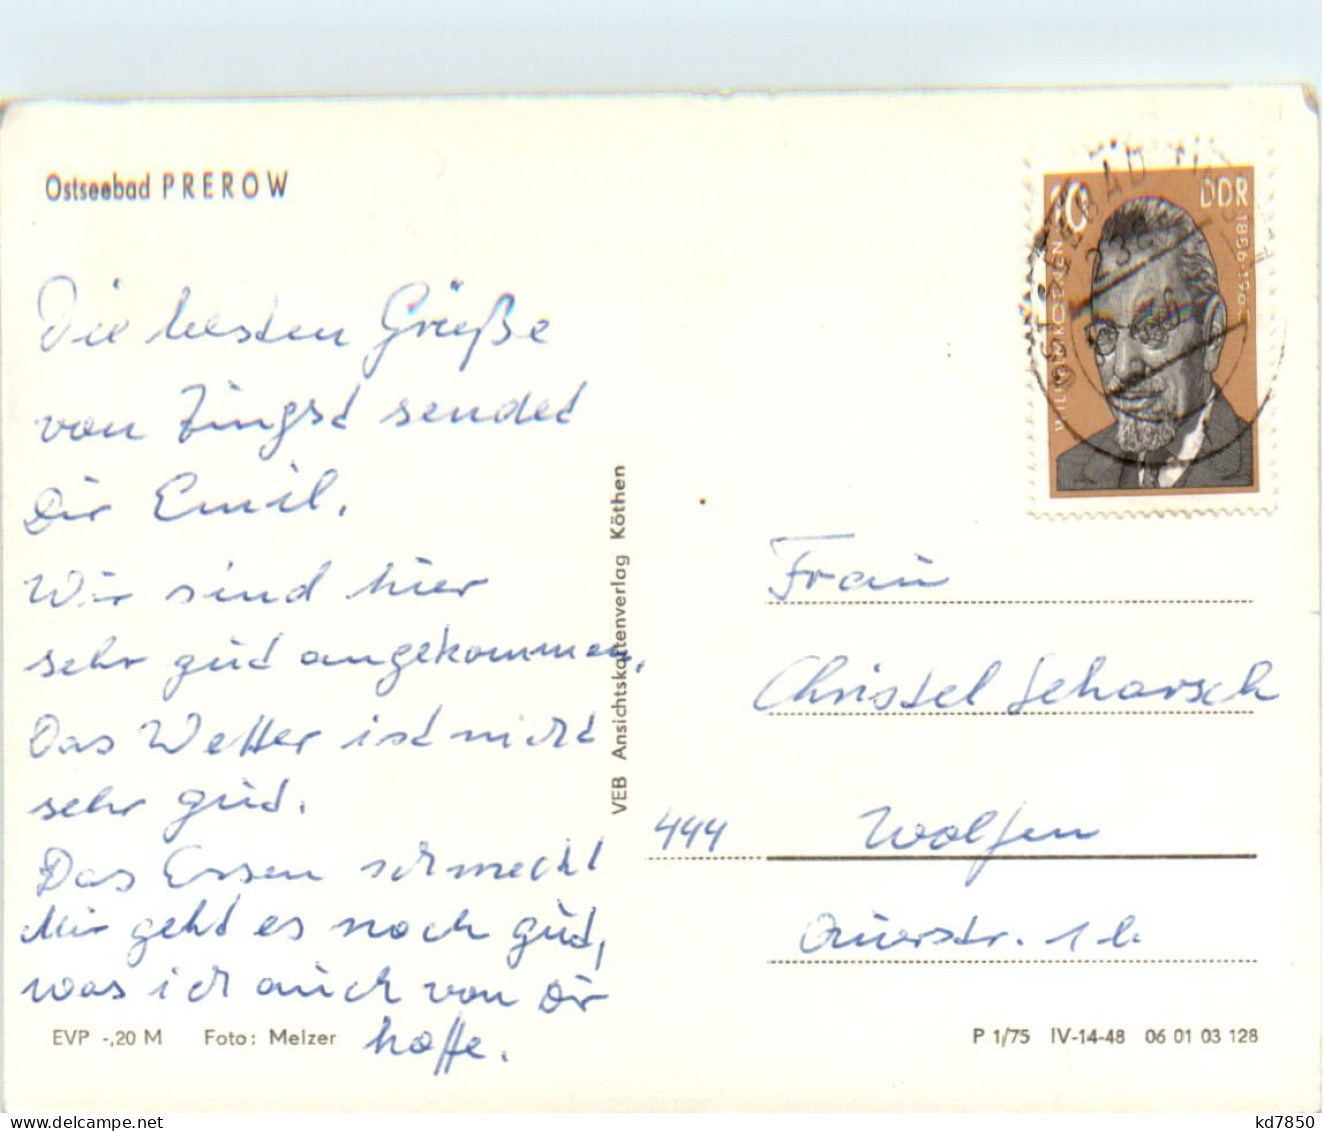 Ostseebad PREROW
Die besten Grüße
von Zingst sendet
Dir Emil.
Wir sind hier
sehr gut angekommen.
Das Wetter ist nicht
sehr gut.
Das Essen schmeckt
Mir geht es noch gut,
was ich auch von Dir
hoffe.
EVP -,20 M Foto: Melzer
VEB Ansichtskartenverlag Köthen
10 DDR
WILHELM KOENEN
1886-196
OSTSEEBAD
238
Frau
Christel Scharsch
444 Wolfen
Querstr. 1 b.
P 1/75 IV-14-48 06 01 03 128
www.delcampe.net
kd7850